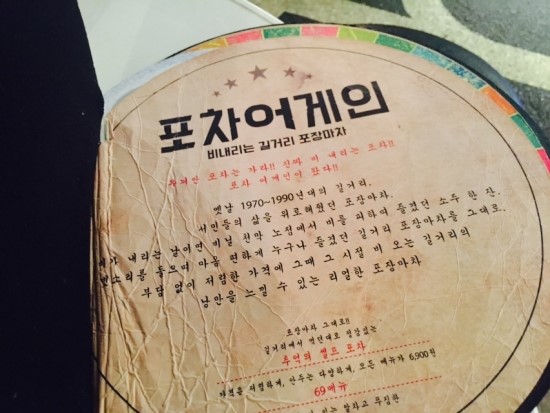 포차어게인
비내리는 길거리 포장마차
포차는 가라!! 진짜 비 내리는 포차!!
포차 어게인이 왔다!!
옛날 1970~1990년대의 길거리.
서민들의 삶을 위로해줬던 포장마차.
비가 내리는 날이면 비닐 천막 노점에서 비를 피하며 즐겼던 소주 한 잔.
빗소리를 들으며 마음 편하게 누구나 즐겼던 길거리 포장마차를 그대로.
부담 없이 저렴한 가격에 그때 그 시절 비 오는 길거리의
낭만을 느낄 수 있는 리얼한 포장마차
포장마차 그대로!!
길거리에서 먹던대로 정감있는
추억의 셀프 포차
가격은 저렴하게, 안주는 다양하게, 모든 메뉴가 6,900원
69메뉴